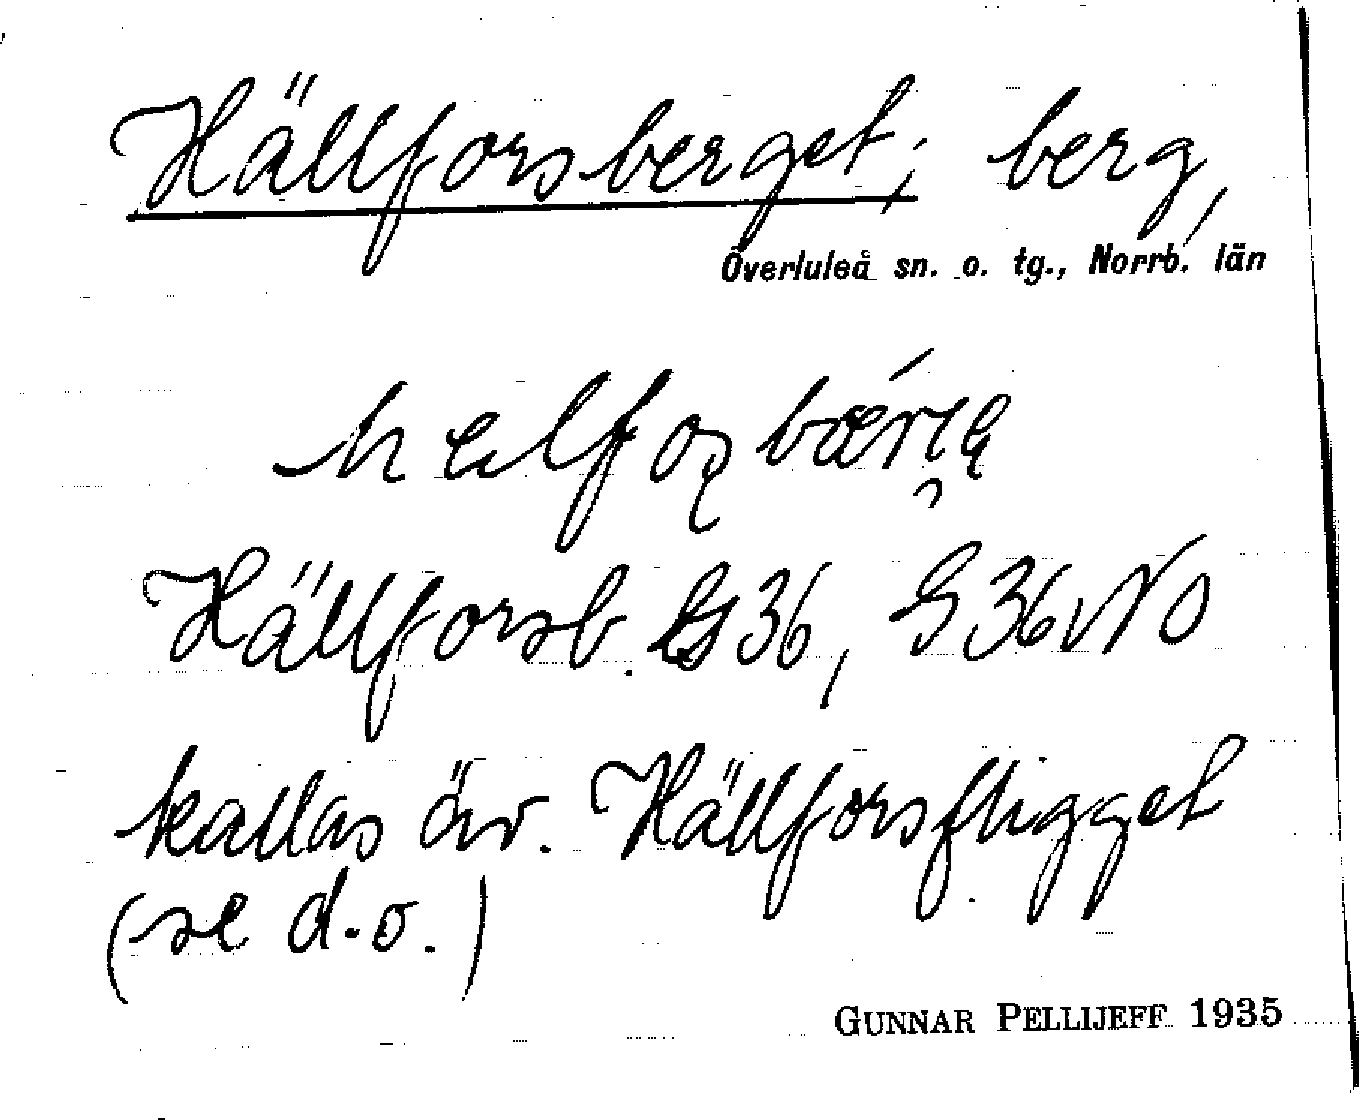 Hällforsberget; berg,
Överluleå sn. o. tg., Norrb. län
Hällforsb. G36, G36vNO
kallas äv. Hällforsfligget
(se d.o.)
GUNNAR PELLIJEFF 1935